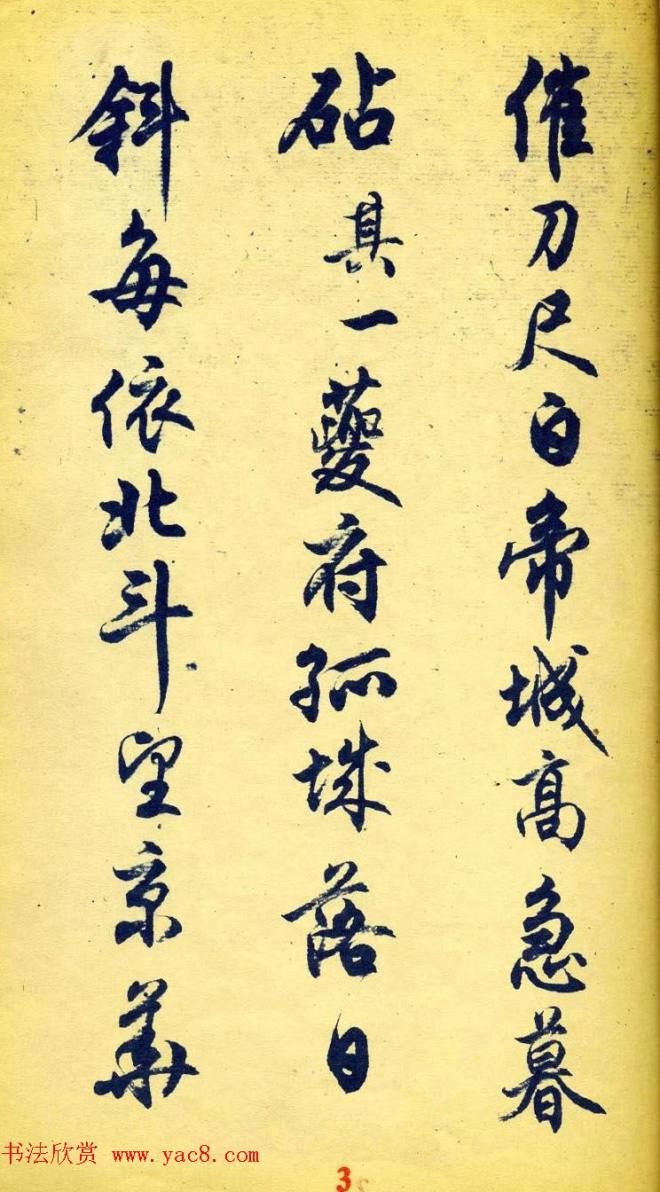 催刀尺白帝城高急暮
砧其一夔府孤城落日
斜每依北斗望京華
书法欣赏 www.yac8.com
3